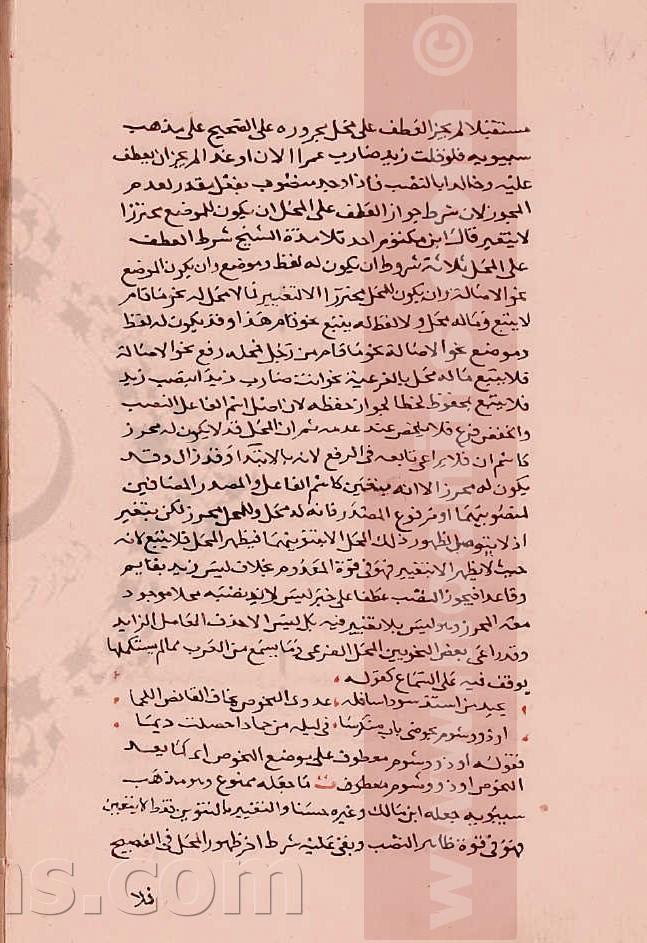 مستقبلا لم يجز العطف على محل مجروره على الصحيح على مذهب
سيبويه فلو قلت زيد ضارب عمرا الان او غدا لم يجز ان يعطف
عليه وخالدا بالنصب فاذا وجد منصوب بفعل يقدر لعدم
المجوز لان شرط جواز العطف على المحل ان يكون للموضع محرزا
لا يتغير قال ابن مكتوم احد تلامذة الشيخ شرط العطف
على المحل ثلاثة شروط ان يكون له لفظ وموضع وان يكون الموضع
بحق الاصالة وان يكون للمحل محرزا لا التغيير فما لا محل له نحو ما قام
لا يتبع وماله محل ولا لفظ له يتبع نحو قام هذا وقد يكون له لفظ
وموضع بحق الاصالة نحو ما قام من رجل فمحله رفع بحق الاصالة
فلا يتبع ماله محل بالفرعية نحو انت ضارب زيدا بنصب زيد
فلا يتبع محفوظ لحظا لجواز حفظه لان اصل اسم الفاعل النصب
والخفض فرع فلا يلحض عند عدمه ثم ان المحل قد لا يكون له محرز
كاسم ان فلا يراعى تابعه فى الرفع لانه بالابتداء وقد زال وقد
يكون له محرز الا انه يتغير كاسم الفاعل والمصدر المضافين
لمنصوبيهما او مرفوع المصدر فانه له محل وللمحل محرز لكن بتغير
اذ لا يتوصل لظهور ذلك المحل الا بتنوينهما فيظهر المحل فلا يتبع لانه
حيث لا يظهر الا بتغيير فهو فى قوة المعدوم بخلاف ليس زيد بقايم
وقاعدا فيجوز النصب عطفا على خبر ليس لان نصبه محلا موجود
معه المحرز وهو ليس بلا تغيير فيه بل ليس الا حذف العامل الزايد
وقد راعى بعض النحويين المحل الفرعى وما يسمع من العرب مما لم يستكملها
يوقف فيه على السماع كقوله
فقوله او ذو وشوم معطوف على موضع النحوص اى كما بعد
النحوص او ذو وشوم معطوف ما جعله ممنوع وهو مذهب
سيبويه جعله ابن مالك وغيره حسنا والتغيير بالتنوين فقط لا يتغير
فهو فى قوة ظاهر النصب وبقى عليه شرط اخر ظهور المحل فى الفصيح
فلا